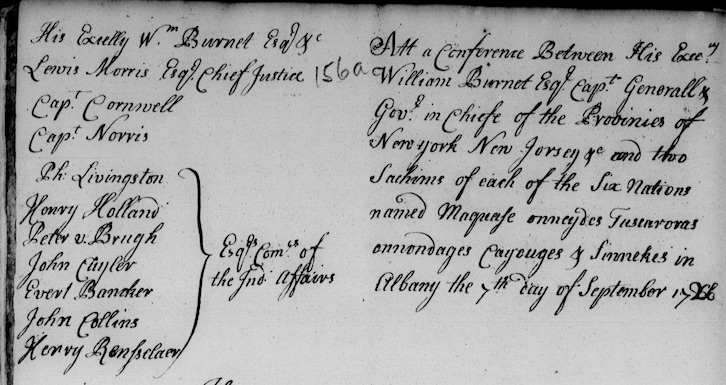 His Excelly Wm Burnet Esqr &c
Lewis Morris Esqr Chief Justice 156a
Capt Cornwell
Capt Norris
Ph: Livingston
Henry Holland
Peter v. Brugh
John Cuyler
Evert Bancker
John Collins
Henry Renselaer
Esqrs Comrs of
the Ind: Affairs
Att a Conference Between His Excely
William Burnet Esqr Capt Generall &
Govr in Chiefe of the Provinies of
New york New Jersey &c and two
Sachims of each of the Six Nations
named Maquase onneydes Tuscaroras
onnondages Cayouges & Sinnekes in
Albany the 7th day of September